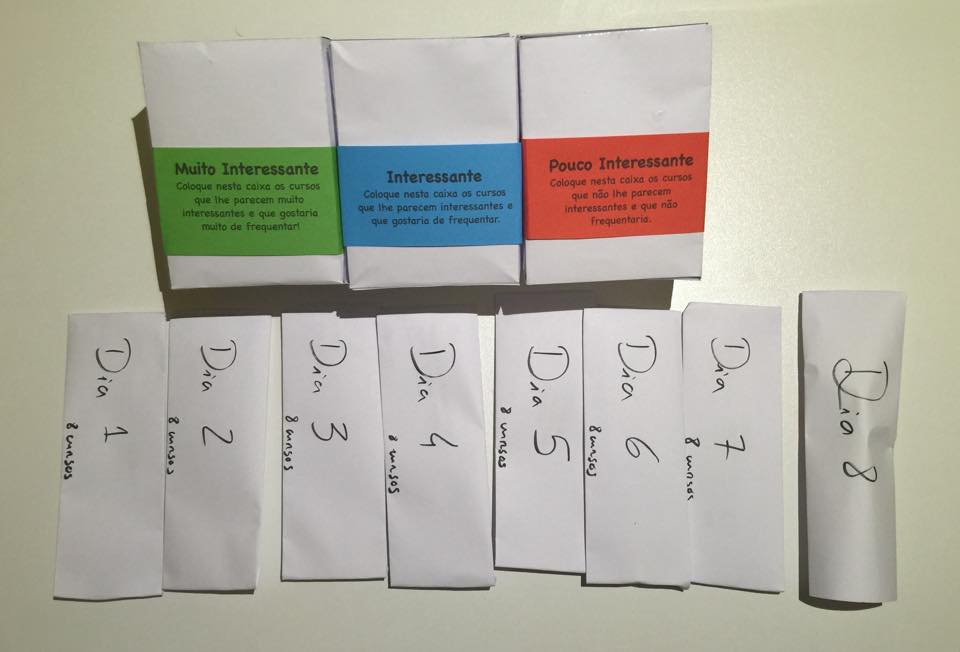 Muito Interessante
Coloque nesta caixa os cursos
que lhe parecem muito
interessantes e que gostaria
muito de frequentar!
Interessante
Coloque nesta caixa os cursos
que lhe parecem interessantes e
que gostaria de frequentar.
Pouco Interessante
Coloque nesta caixa os cursos
que não lhe parecem
interessantes e que não
frequentaria.
Dia 1
8 cursos
Dia 2
8 cursos
Dia 3
8 cursos
Dia 4
8 cursos
Dia 5
8 cursos
Dia 6
8 cursos
Dia 7
8 cursos
Dia 8